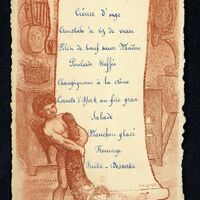 Crème d'orge
Croustade de riz de veau
Filet de bœuf sauce Madère
Poularde truffée
Champignons à la crème
Cornets d'York au foie gras
Salade
Manchon glacé
Fromage
Fruits - Desserts